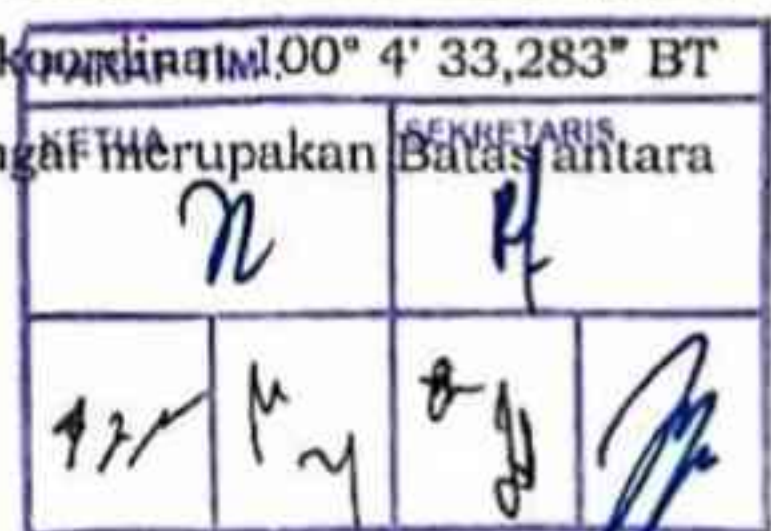 koordinat 100° 4' 33,283" BT
PARAF TIM.
KETUA
SEKRETARIS
merupakan Batas antara